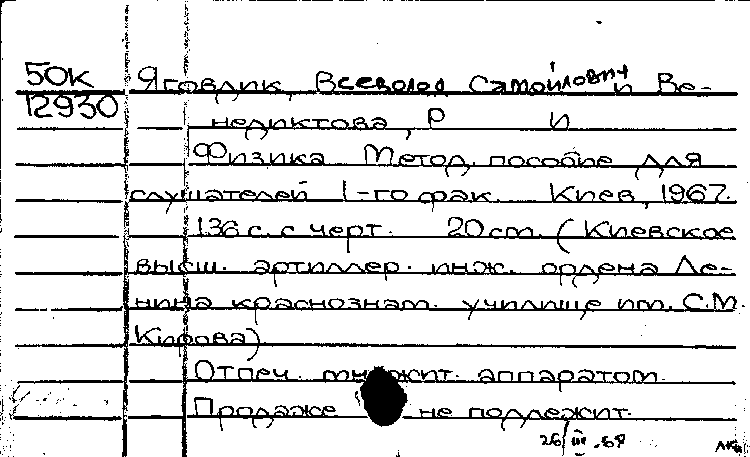 50К Яговдик, Всеволод Самойлович и Ве-
12930 недиктова, Р И
Физика Метод. пособие для
слушателей 1-го фак. Киев, 1967.
136 с. с черт. 20 cm. (Киевское
высш. артиллер. инж. ордена Ле-
нина краснознам. училище им. С.М.
Кирова)
Отпеч. множит. аппаратом.
Продаже не подлежит.
26/III.68